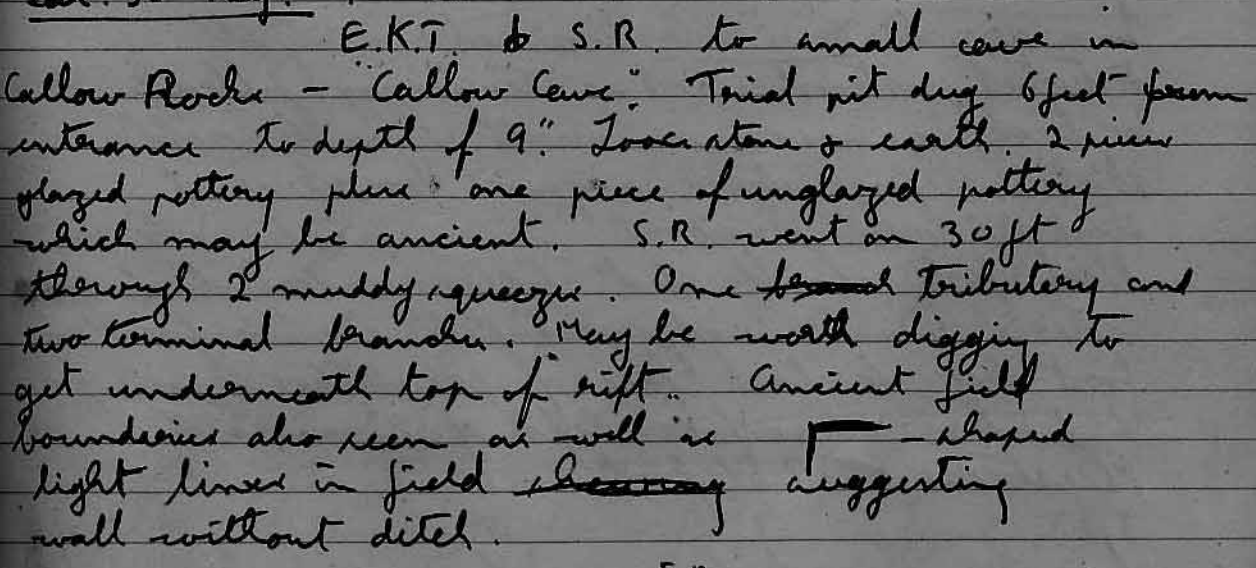 E.K.T. & S.R. to small cave in
Callow Rocks – "Callow Cave". Trial pit dug 6 feet from
entrance to depth of 9". Loose stone & earth. 2 pieces
glazed pottery plus one piece of unglazed pottery
which may be ancient. S.R. went on 30 ft
through 2 muddy squeezes. One tributary and
two terminal branches. May be worth digging to
get underneath top of rift. Ancient field
boundaries also seen as well as Γ-shaped
light lines in field suggesting
wall without ditch.